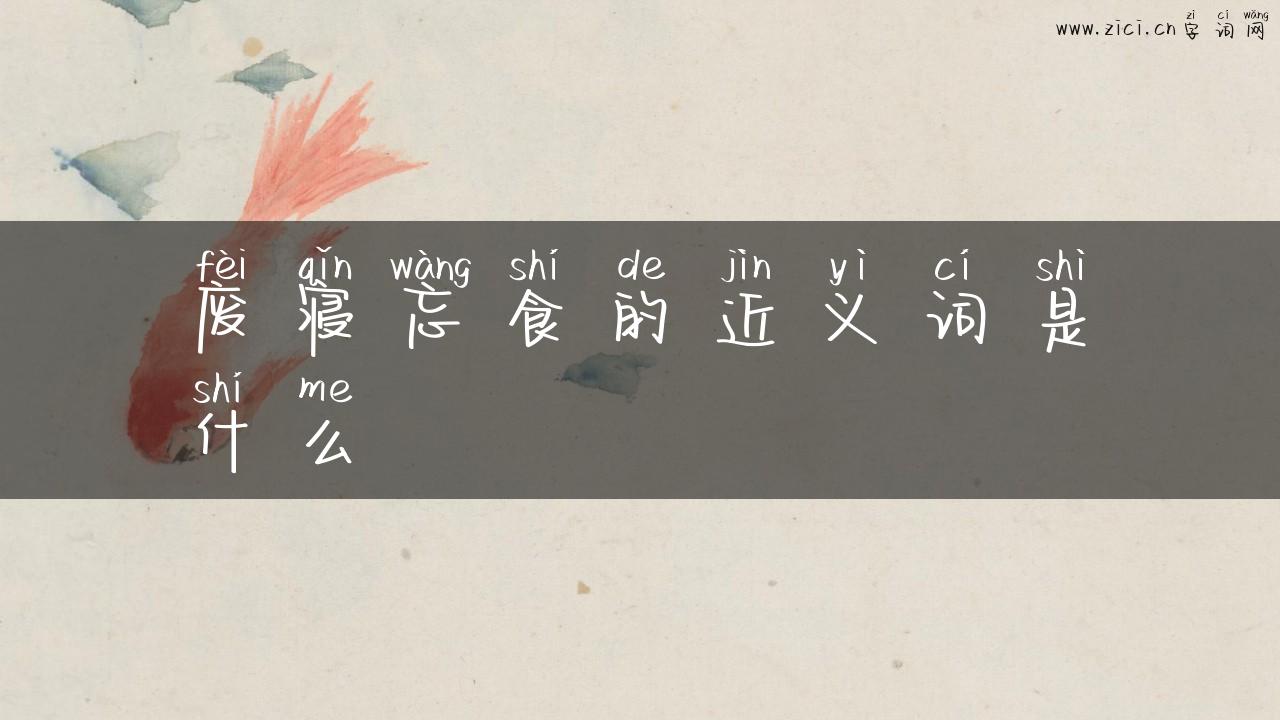 zì cí wǎng
www.zici.cn 字词网
fèi qǐn wàng shí de jìn yì cí shì
废寝忘食的近义词是
shí me
什么